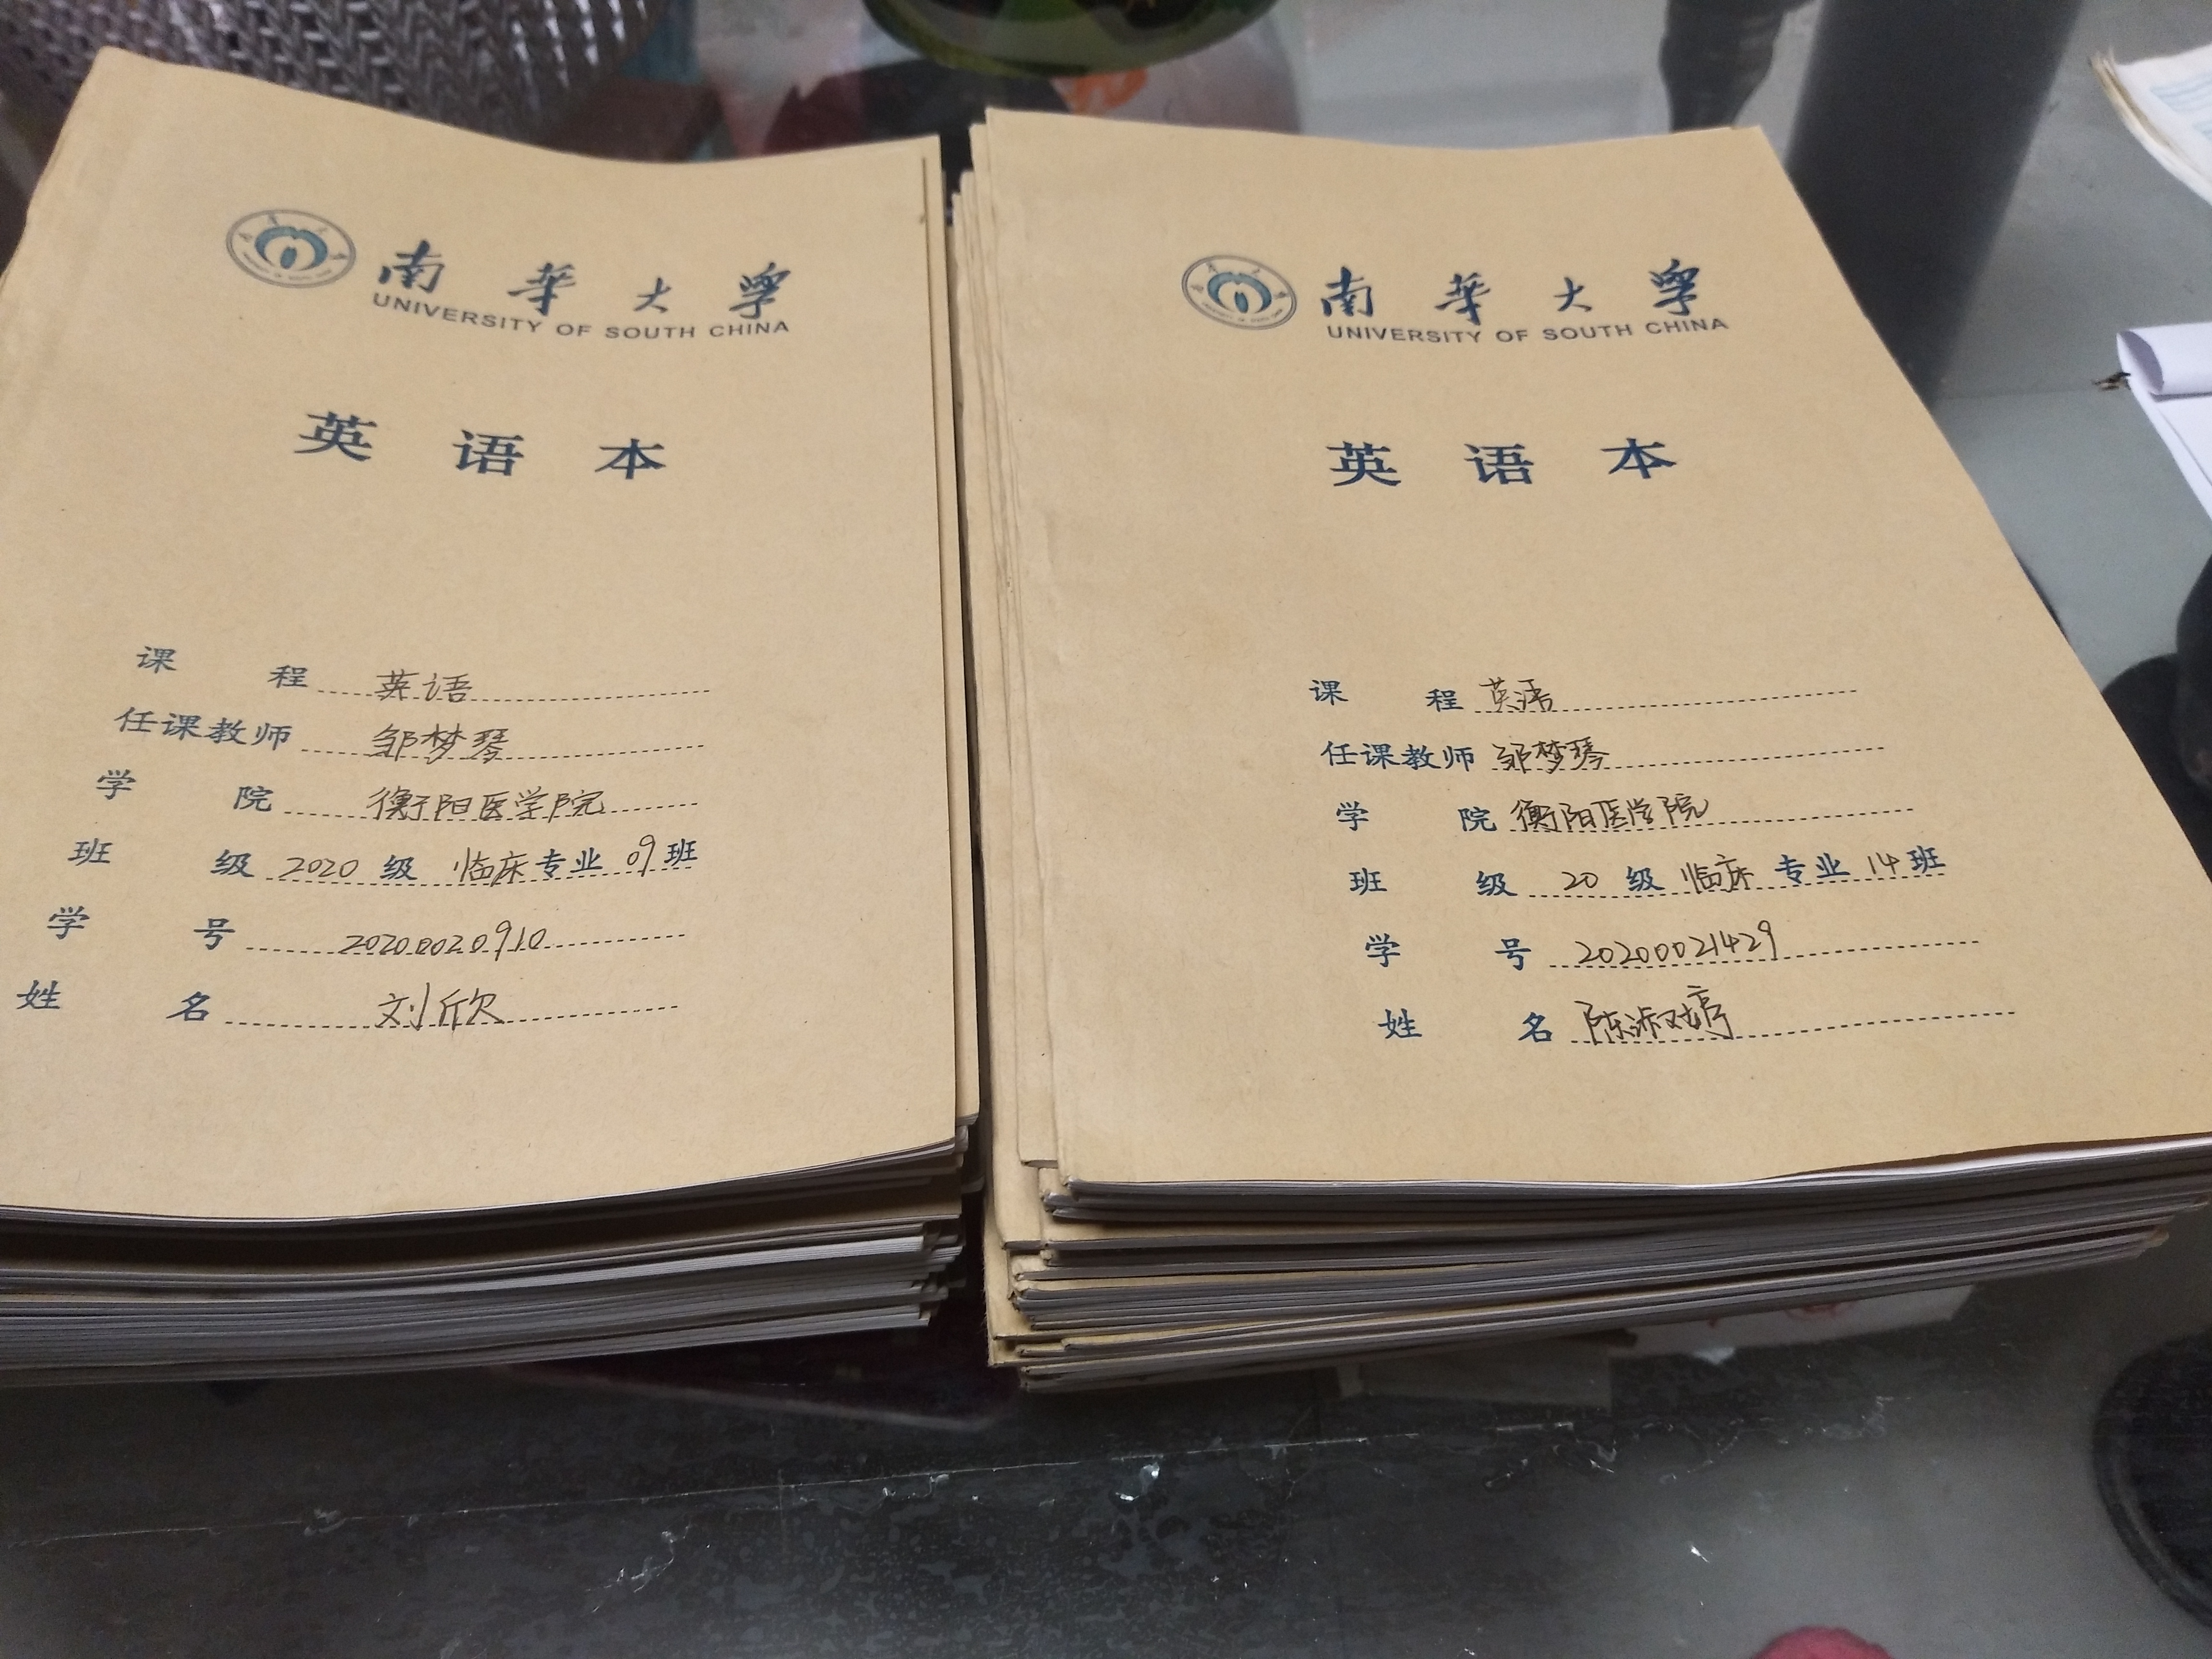 南华大学
UNIVERSITY OF SOUTH CHINA
英语本
课程 英语
任课教师 邹梦琴
学院 衡阳医学院
班级 2020级 临床专业 09班
学号 20200020910
姓名 刘欣
南华大学
UNIVERSITY OF SOUTH CHINA
英语本
课程 英语
任课教师 邹梦琴
学院 衡阳医学院
班级 20级 临床专业 14班
学号 20200021429
姓名 陈淑婷